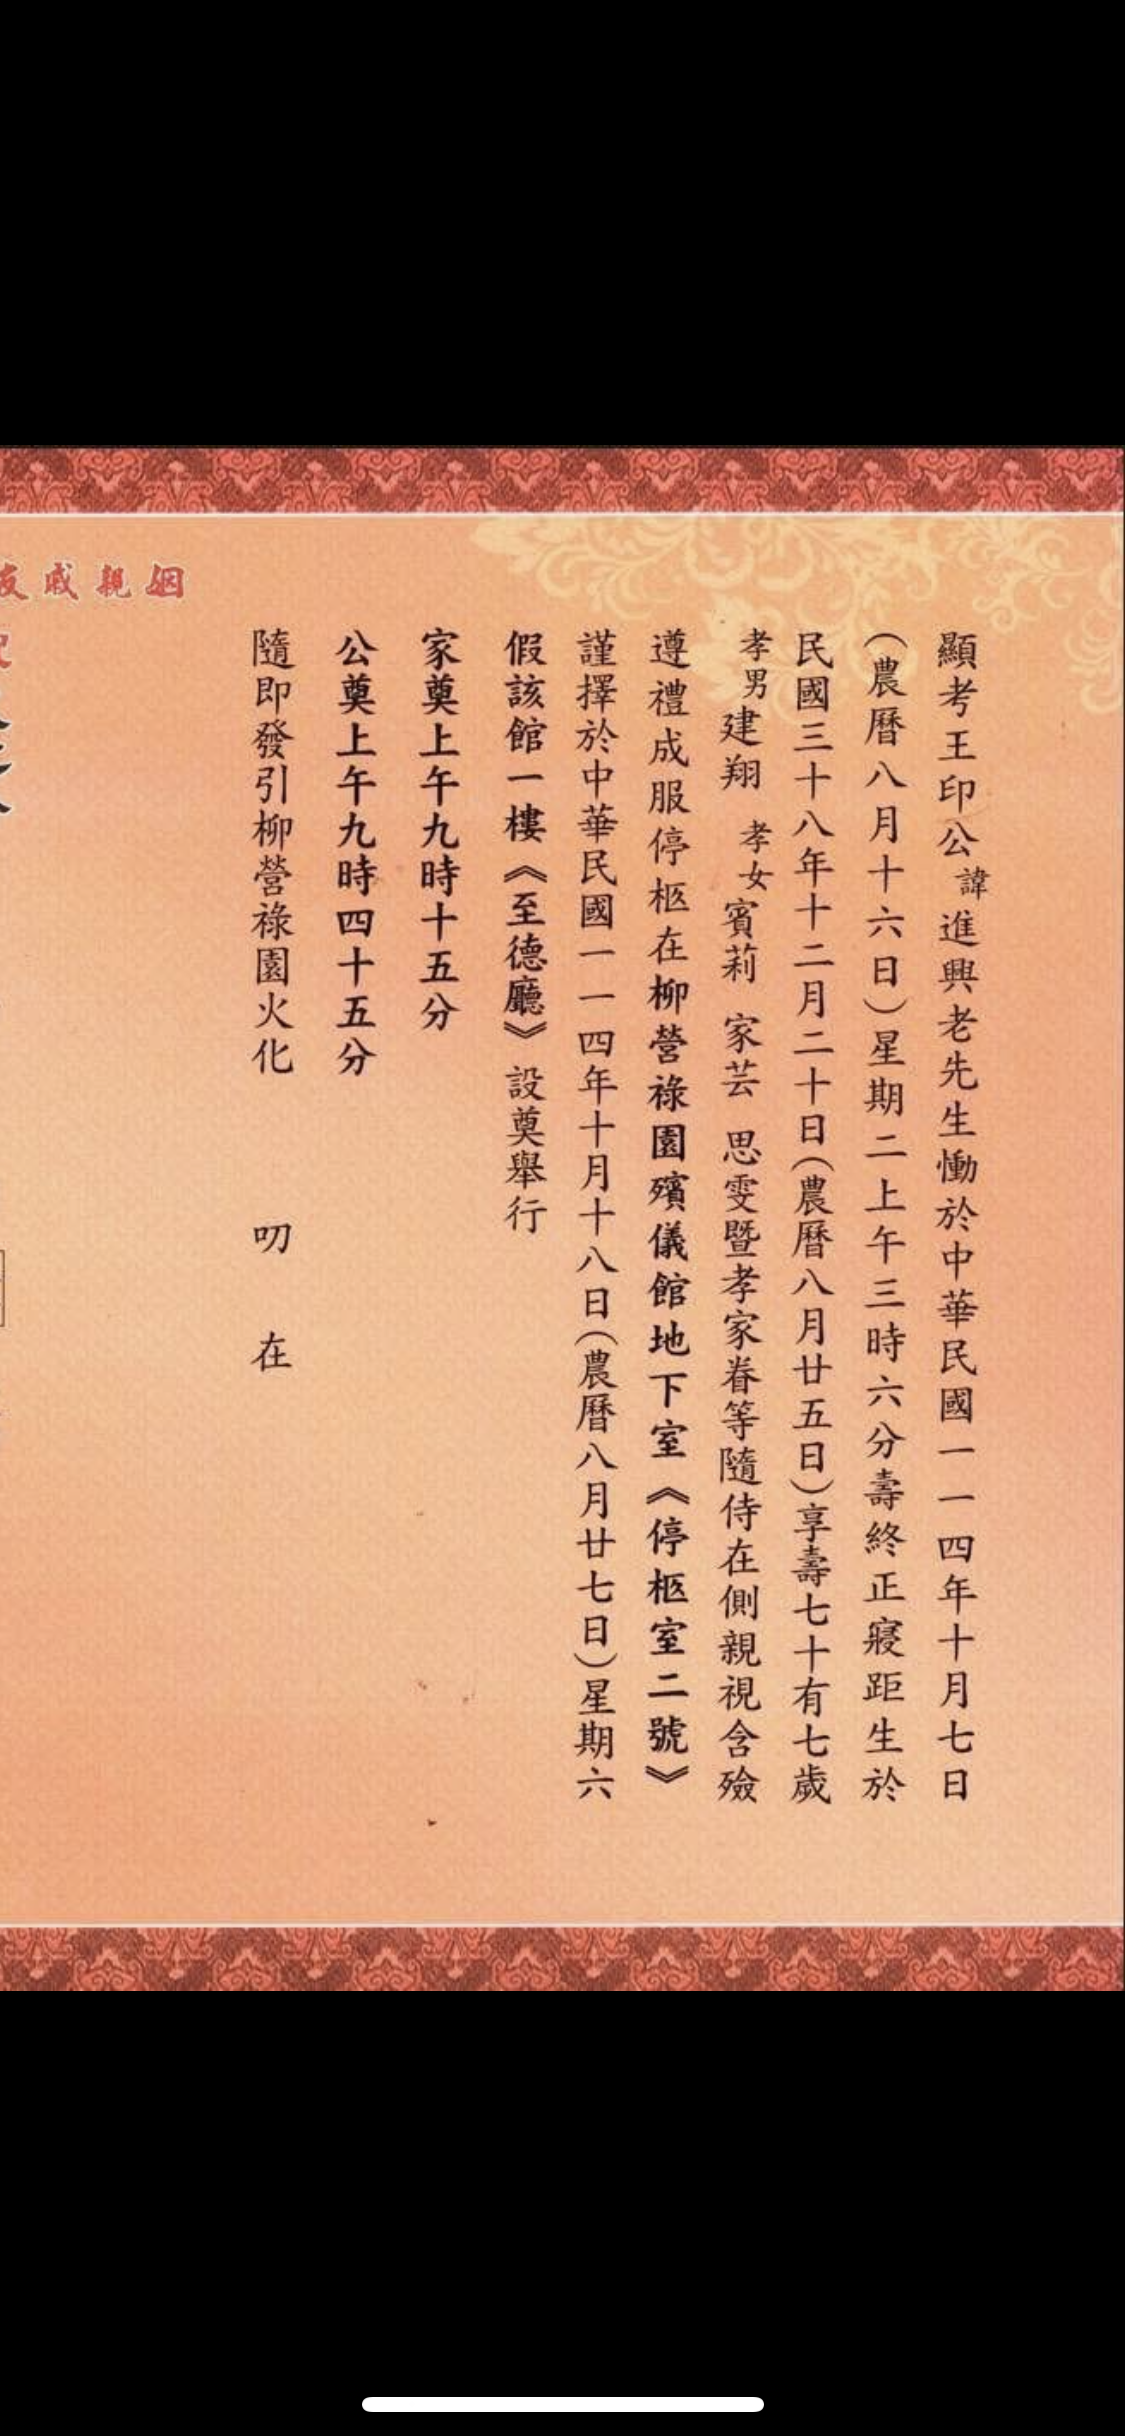 顯考王印公諱進興老先生慟於中華民國一一四年十月七日
(農曆八月十六日)星期二上午三時六分壽終正寢距生於
民國三十八年十二月二十日(農曆八月廿五日)享壽七十有七歲
孝男建翔 孝女賓莉 家芸 思雯暨孝家眷等隨侍在側親視含殮
遵禮成服停柩在柳營祿園殯儀館地下室《停柩室二號》
謹擇於中華民國一一四年十月十八日(農曆八月廿七日)星期六
假該館一樓《至德廳》設奠舉行
家奠上午九時十五分
公奠上午九時四十五分
隨即發引柳營祿園火化 叨 在
姻親戚友